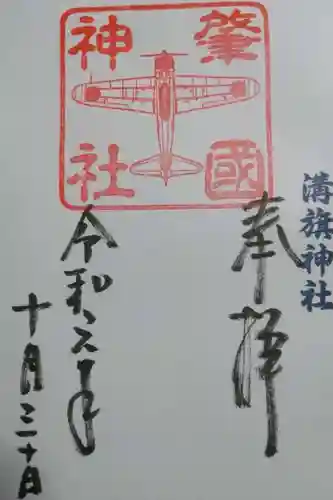 溝旗神社
奉拝
肇國
神社
令和六年
十月三十日